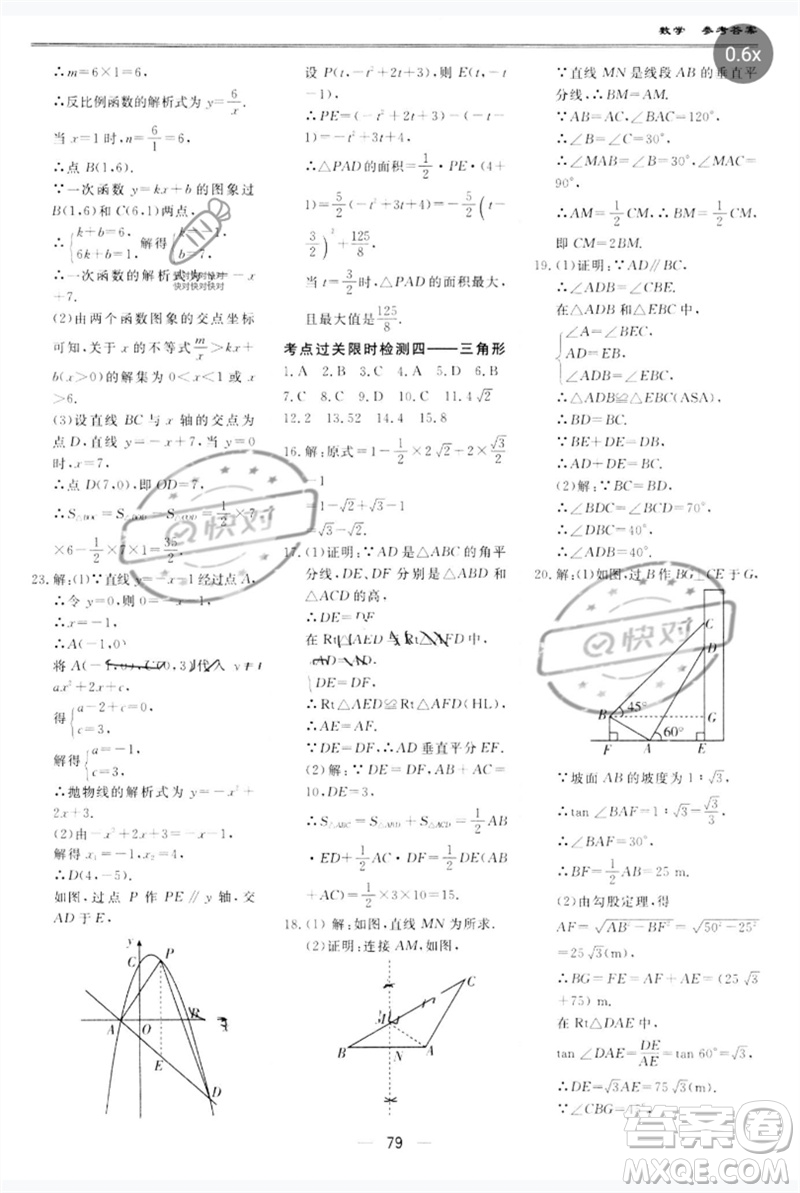 数学 参考答案
0.6x
∴m=6×1=6.
∴反比例函数的解析式为 y=6/x.
当 x=1 时,n=6/1=6,
∴点 B(1,6).
∵一次函数 y=kx+b 的图象过
B(1,6)和 C(6,1)两点,
∴{k+b=6, 6k+b=1, 解得{ b=7.
∴一次函数的解析式为 -x
+7.
(2)由两个函数图象的交点坐标
可知,关于 x 的不等式 m/x>kx+
b 的解集为 0<x<1 或 x
>6.
(3)设直线 BC 与 x 轴的交点为
点 D,由直线 y=-x+7,令 y=0,
解得 x=7,
∴点 D(7,0),即 OD=7,
∴S△BOC=S△BOD-S△COD=1/2×7
×6-1/2×7×1=35/2.
23.解:(1)∵直线 -x-1经过点 A,
∴令 则0=-x-1,
∴x=-1,
∴A(-1,0)
将 A( 代入
ax²+2x+c,
得{a-2+c=0, c=3,
解得{a=-1, c=3,
∴抛物线的解析式为 y=-x²+
2x+3.
(2)由-x²+2x+3=-x-1,
解得 x₁=-1,x₂=4,
∴D(4,-5).
如图,过点 P 作 PE∥y 轴,交
AD于 E,
y
C
P
A
O
B
E
D
设 P(t,-t²+2t+3),则 E(t,-t
-1),
∴PE=(-t²+2t+3)-(-t-
1)=-t²+3t+4,
∴△PAD 的面积=1/2·PE·(4+
1)=5/2(-t²+3t+4)=-5/2(t-
3/2)²+125/8,
当 t=3/2时,△PAD 的面积最大,
且最大值为125/8.
考点过关限时检测四——三角形
1.A 2.B 3.C 4.A 5.D 6.B
7.C 8.C 9.B 10.C 11.4√2
12.2 13.52 14.4 15.8
16.解:原式=1-1/2×2√2+2×√3/2
-1
=1-√2+√3-1
=√3-√2.
17.(1)证明:∵AD 是△ABC 的角平
分线,DE,DF 分别是△ABD 和
△ACD 的高,
∴DE=DF
在 Rt△AED 与Rt△AFD中,
∴Rt△AED≌Rt△AFD(HL),
∴AE=AF.
∵DE=DF,∴AD垂直平分EF.
(2)解:∵DE=DF,AB+AC=
10,
∴S△ABC=S△ABD+S△ACD=1/2AB
·ED+1/2AC·DF=1/2DE(AB+
AC)=1/2×3×10=15.
18.(1)解:如图,直线 MN 为所求.
(2)证明:连接 AM,如图,
C
M
B
N
A
∵直线 MN 是线段 AB 的垂直平
分线,∴BM=AM.
∵AB=AC,∠BAC=120°,
∴∠B=∠C=30°.
∴∠MAB=∠B=30°,∠MAC=
90°,
∴AM=1/2CM,∴BM=1/2CM,
即 CM=2BM.
19.(1)证明:∵AD∥BC,
∴∠ADB=∠CBE.
在△ABD 和△ECB 中,
{∠A=∠BEC, AD=EB, ∠ADB=∠EBC,
∴△ADB≌△EBC(ASA),
∴BD=BC.
∵BE=AD,
∴BD-BE=BC-AD,
即 DE=BC-AD.
(2)解:∵BC=BD,
∴∠BDC=∠BCD=70°,
∴∠DBC=40°,
∴∠ADB=∠CBD=40°.
20.解:(1)如图,过 B 作 BG⊥CE于G,
C
D
45°
B
G
60°
F
A
E
∵坡面 AB 的坡度为 1∶√3,
∴tan ∠BAF=1∶√3=√3/3,
∴∠BAF=30°,
∴BF=1/2AB=25 m.
(2)由勾股定理,得
AF=√(AB²-BF²)=√(50²-25²)
=25√3(m),
∴BG=FE=AF+AE=(25√3
+75)m.
在 Rt△DAE 中,
tan ∠DAE=DE/AE=tan 60°=√3,
∴DE=√3AE=75√3(m).
∵∠CBG=45°,
79
快对
快对
快对快对快对
快对快对快对
答案圈
MXQE.COM